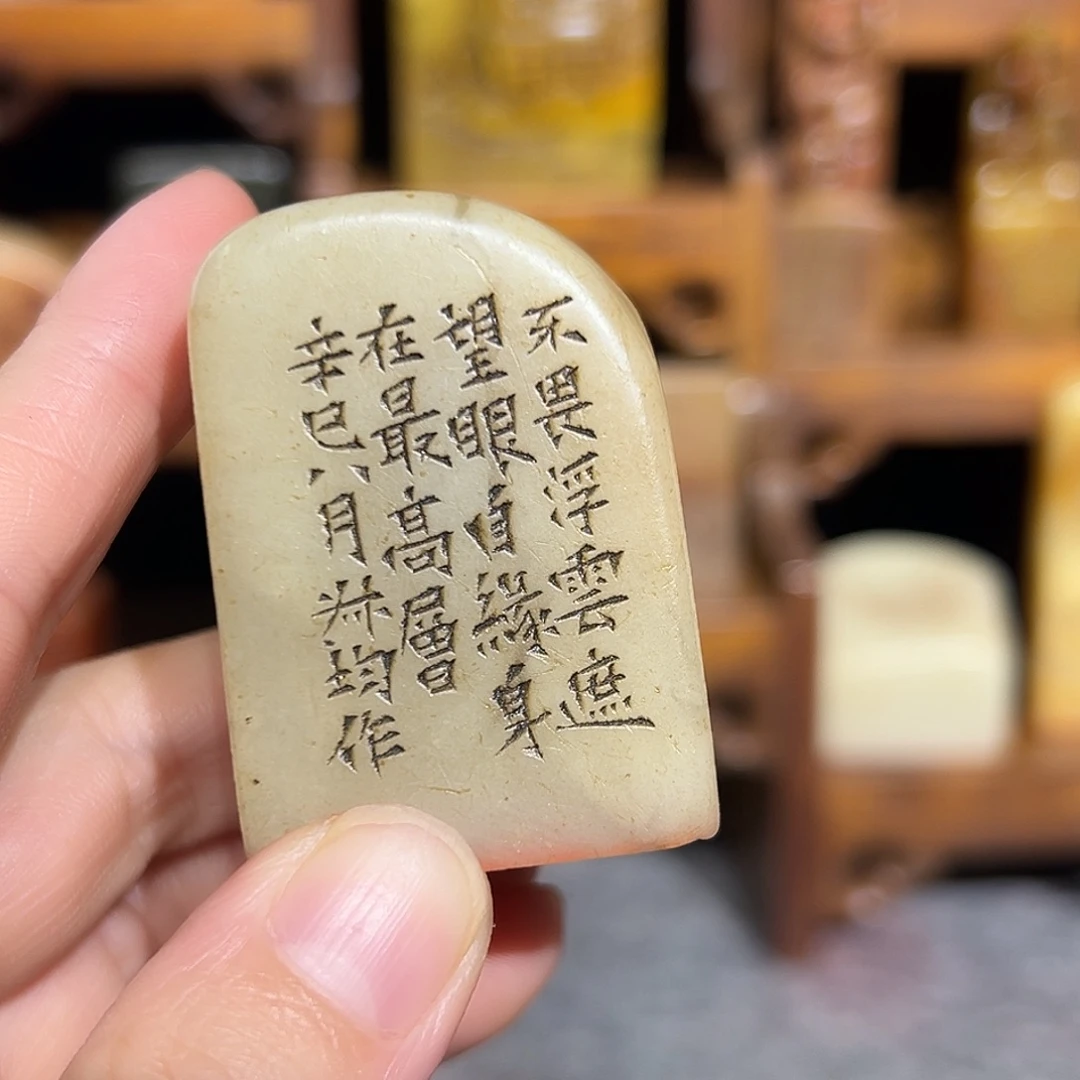 不畏浮雲遮
望眼自緣身
在最高層
辛巳八月均作